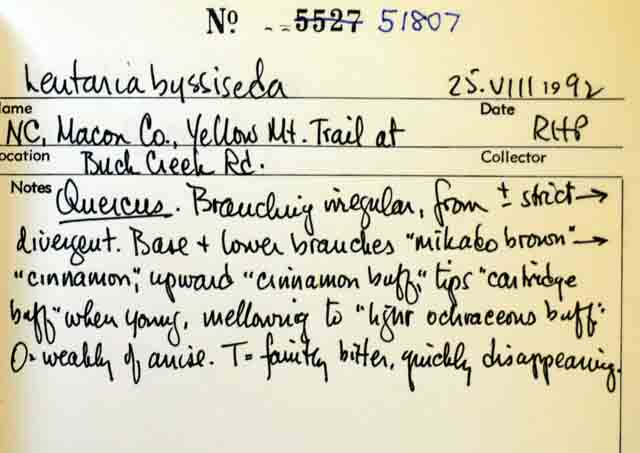 No --5527 51807
Lentaria byssiseda 25.VIII 1992
ame Date
NC, Macon Co., Yellow Mt. Trail at RHP
ocation Buck Creek Rd. Collector
Notes Quercus. Branching irregular, from ± strict →
divergent. Base + lower branches "mikado brown" →
"cinnamon", upward "cinnamon buff," tips "cartridge
buff" when young, mellowing to "light ochraceous buff".
O = weakly of anise. T = faintly bitter, quickly disappearing.